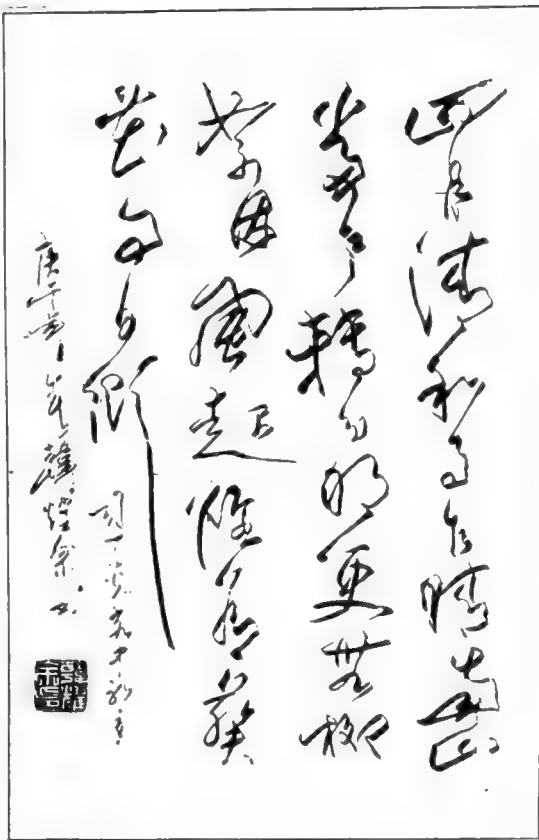 四月清和雨乍晴南山
當户轉分明更無柳
絮因風起惟有葵
花向日倾
司马光客中初夏
庚午